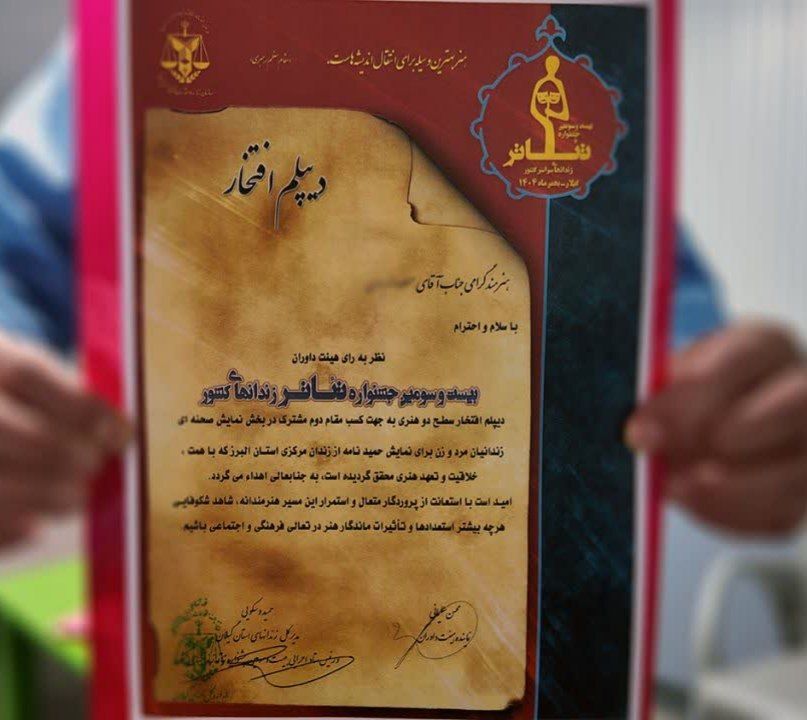 هنر بهترین وسیله برای انتقال اندیشه‌هاست.
مقام معظم رهبری
بیست و سومین
جشنواره
تئاتر
زندانهای سراسر کشور
گیلان - بهمن ماه ۱۴۰۴
دیپلم افتخار
هنرمند گرامی جناب آقای
با سلام و احترام
نظر به رای هیئت داوران
بیست و سومین جشنواره تئاتر زندانهای کشور
دیپلم افتخار سطح دو هنری به جهت کسب مقام دوم مشترک در بخش نمایش صحنه ای
زندانیان مرد و زن برای نمایش حمید نامه از زندان مرکزی استان البرز که با همت ،
خلاقیت و تعهد هنری محقق گردیده است، به جنابعالی اهداء می گردد.
امید است با استعانت از پروردگار متعال و استمرار این مسیر هنرمندانه، شاهد شکوفایی
هرچه بیشتر استعدادها و تأثیرات ماندگار هنر در تعالی فرهنگی و اجتماعی باشیم.
محسن علیخانی
نماینده هیئت داوران
مدیرکل زندانهای استان گیلان